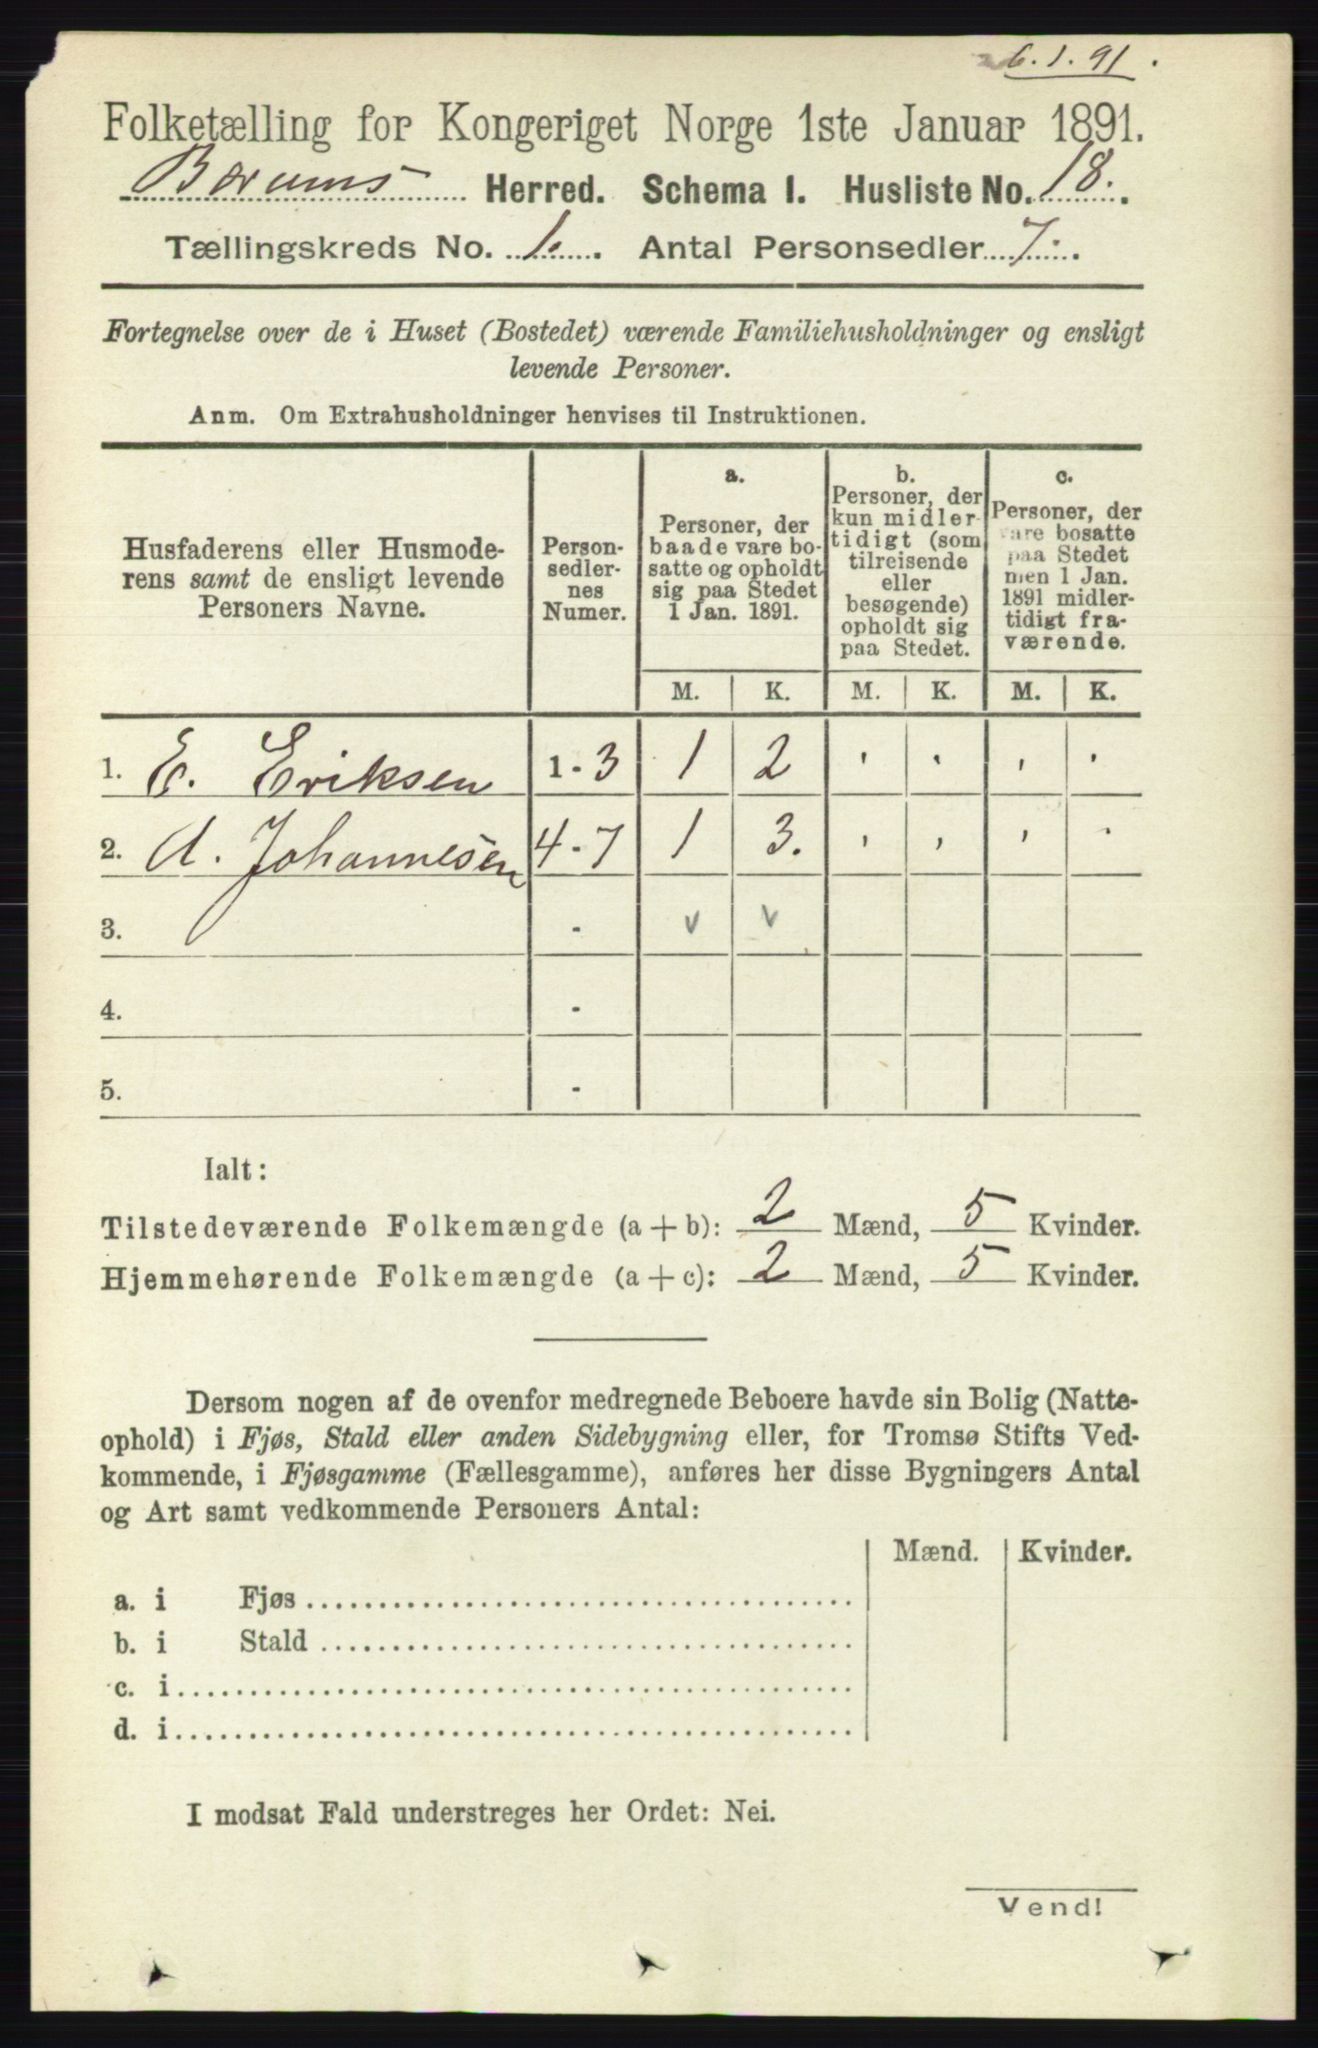 6.1.91.
Folketælling for Kongeriget Norge 1ste Januar 1891.
Bærums Herred. Schema I. Husliste No. 18.
Tællingskreds No. 1. Antal Personsedler 7.
Fortegnelse over de i Huset (Bostedet) værende Familiehusholdninger og ensligt
levende Personer.
Anm. Om Extrahusholdninger henvises til Instruktionen.
Husfaderens eller Husmode-
rens samt de ensligt levende
Personers Navne.
Person-
sedler-
nes
Numer.
a.
Personer, der
baade vare bo-
satte og opholdt
sig paa Stedet
1 Jan. 1891.
b.
Personer, der
kun midler-
tidigt (som
tilreisende
eller
besøgende)
opholdt sig
paa Stedet.
c.
Personer, der
vare bosatte
paa Stedet
men 1 Jan.
1891 midler-
tidigt fra-
værende.
M. K. M. K. M. K.
1. E. Eriksen 1-3 1 2
2. A. Johannesen 4-7 1 3.
3. - v v
4. -
5. -
Ialt:
Tilstedeværende Folkemængde (a + b): 2 Mænd, 5 Kvinder.
Hjemmehørende Folkemængde (a + c): 2 Mænd, 5 Kvinder.
Dersom nogen af de ovenfor medregnede Beboere havde sin Bolig (Natte-
ophold) i Fjøs, Stald eller anden Sidebygning eller, for Tromsø Stifts Ved-
kommende, i Fjøsgamme (Fællesgamme), anføres her disse Bygningers Antal
og Art samt vedkommende Personers Antal:
Mænd. Kvinder.
a. i Fjøs
b. i Stald
c. i
d. i
I modsat Fald understreges her Ordet: Nei.
Vend!